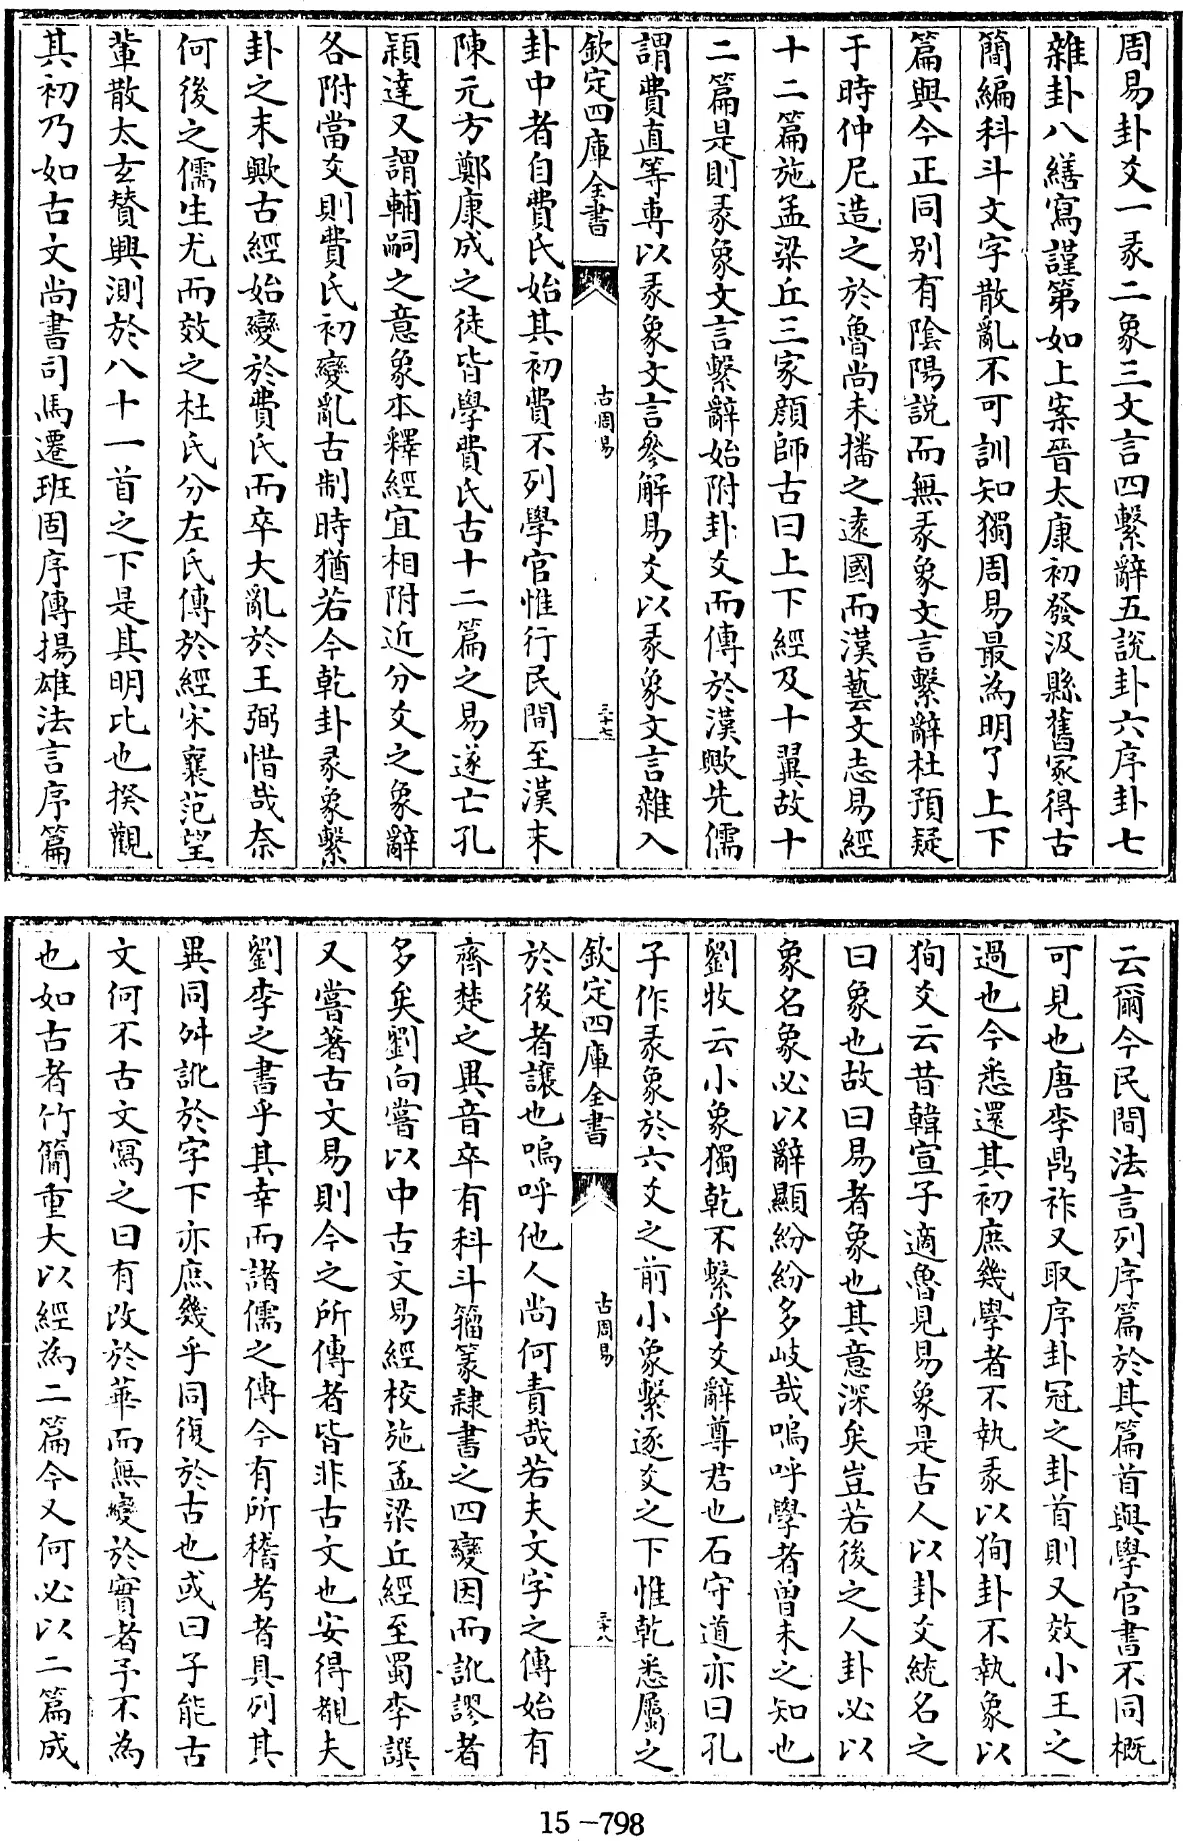 周易卦爻一彖二象三文言四繫辭五說卦六序卦七
雜卦八繕寫謹第如上案晉太康初發汲縣舊冢得古
簡編科斗文字散亂不可訓知獨周易最為明了上下
篇與今正同別有陰陽說而無彖象文言繫辭杜預疑
于時仲尼造之於魯尚未播之遠國而漢藝文志易經
十二篇施孟梁丘三家顏師古曰上下經及十翼故十
二篇是則彖象文言繫辭始附卦爻而傳於漢歟先儒
謂費直等專以彖象文言參解易爻以彖象文言雜入
欽定四庫全書
古周易
三十七
卦中者自費氏始其初費不列學官惟行民間至漢末
陳元方鄭康成之徒皆學費氏古十二篇之易遂亡孔
穎達又謂輔嗣之意象本釋經宜相附近分爻之象辭
各附當爻則費氏初變亂古制時猶若今乾卦彖象繫
卦之末歟古經始變於費氏而卒大亂於王弼惜哉奈
何後之儒生尤而效之杜氏分左氏傳於經宋衷范望
輩散太玄贊與測於八十一首之下是其明比也揆觀
其初乃如古文尚書司馬遷班固序傳揚雄法言序篇
云爾今民間法言列序篇於其篇首與學官書不同概
可見也唐李鼎祚又取序卦冠之卦首則又效小王之
過也今悉還其初庶幾學者不執彖以狥卦不執象以
狥爻云昔韓宣子適魯見易象是古人以卦爻統名之
曰象也故曰易者象也其意深矣豈若後之人卦必以
象名象必以辭顯紛紛多岐哉嗚呼學者曾未之知也
劉牧云小象獨乾不繫乎爻辭尊君也石守道亦曰孔
子作彖象於六爻之前小象繫逐爻之下惟乾悉屬之
欽定四庫全書
古周易
三十八
於後者讓也嗚呼他人尚何責哉若夫文字之傳始有
齊楚之異音卒有科斗籀篆隸書之四變因而訛謬者
多矣劉向嘗以中古文易經校施孟梁丘經至蜀李譔
又嘗著古文易則今之所傳者皆非古文也安得覩夫
劉李之書乎其幸而諸儒之傳今有所稽考者具列其
異同舛訛於字下亦庶幾乎同復於古也或曰子能古
文何不古文寫之曰有改於華而無變於實者予不為
也如古者竹簡重大以經為二篇今又何必以二篇成
15-798